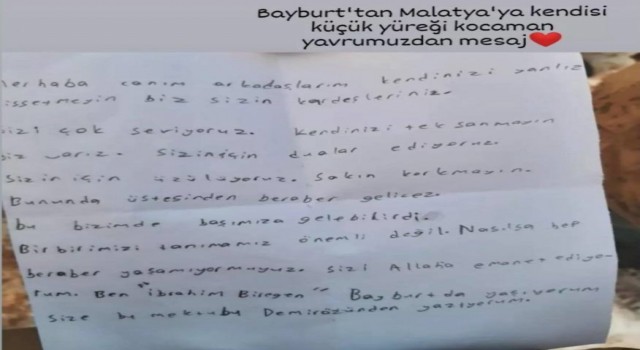 Bayburt'tan Malatya'ya kendisi
küçük yüreği kocaman
yavrumuzdan mesaj❤️
erhaba canım arkadaşlarım kendinizi yanlız
issetmeyin biz sizin kardeşleriniz.
izi çok seviyoruz. kendinizi tek sanmayın
biz varız. Sizin için dualar ediyoruz.
Sizin için üzülüyoruz. Sakın korkmayın.
Bununda üstesinden beraber gelicez.
bu bizimde başımıza gelebilirdi.
Birbirimizi tanımamız önemli değil. Nasılsa hep
beraber yaşamıyormuyuz. Sizi Allaha emanet ediyo-
rum. Ben "İbrahim" Bayburtda yaşıyorum
size bu mektubu Demirözünden yazıyorum.